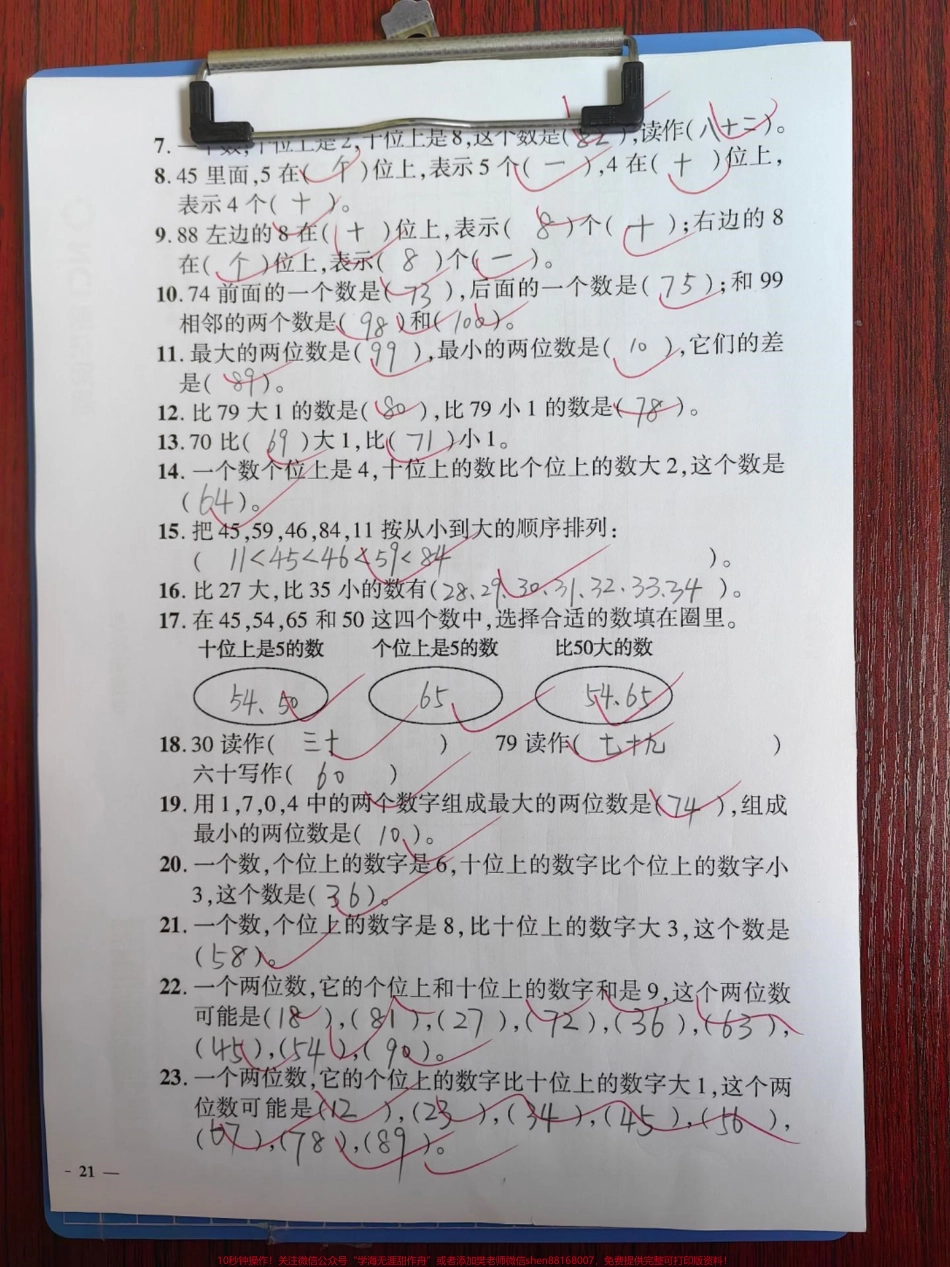 7. 一个数,个位上是2,十位上是8,这个数是(82),读作(八十二)。
8. 45 里面,5 在(个)位上,表示 5 个(一),4 在(十)位上,
表示 4 个(十)。
9. 88 左边的 8 在(十)位上,表示(8)个(十);右边的 8
在(个)位上,表示(8)个(一)。
10. 74 前面的一个数是(73),后面的一个数是(75);和 99
相邻的两个数是(98)和(100)。
11. 最大的两位数是(99),最小的两位数是(10),它们的差
是(89)。
12. 比 79 大 1 的数是(80),比 79 小 1 的数是(78)。
13. 70 比(69)大 1,比(71)小 1。
14. 一个数个位上是 4,十位上的数比个位上的数大 2,这个数是
(64)。
15. 把 45,59,46,84,11 按从小到大的顺序排列:
(11<45<46<59<84)。
16. 比 27 大,比 35 小的数有(28、29、30、31、32、33、34)。
17. 在 45,54,65 和 50 这四个数中,选择合适的数填在圈里。
十位上是5的数 个位上是5的数 比50大的数
54、50 65 54、65
18. 30 读作(三十) 79 读作(七十九)
六十写作(60)
19. 用 1,7,0,4 中的两个数字组成最大的两位数是(74),组成
最小的两位数是(10)。
20. 一个数,个位上的数字是 6,十位上的数字比个位上的数字小
3,这个数是(36)。
21. 一个数,个位上的数字是 8,比十位上的数字大 3,这个数是
(58)。
22. 一个两位数,它的个位上和十位上的数字和是 9,这个两位数
可能是(18),(81),(27),(72),(36),(63),
(45),(54),(90)。
23. 一个两位数,它的个位上的数字比十位上的数字大 1,这个两
位数可能是(12),(23),(34),(45),(56),
(67),(78),(89)。
- 21 —
10秒钟操作!关注微信公众号“学海无涯甜作舟”或者添加樊老师微信shen88168007、免费提供完整可打印版资料!